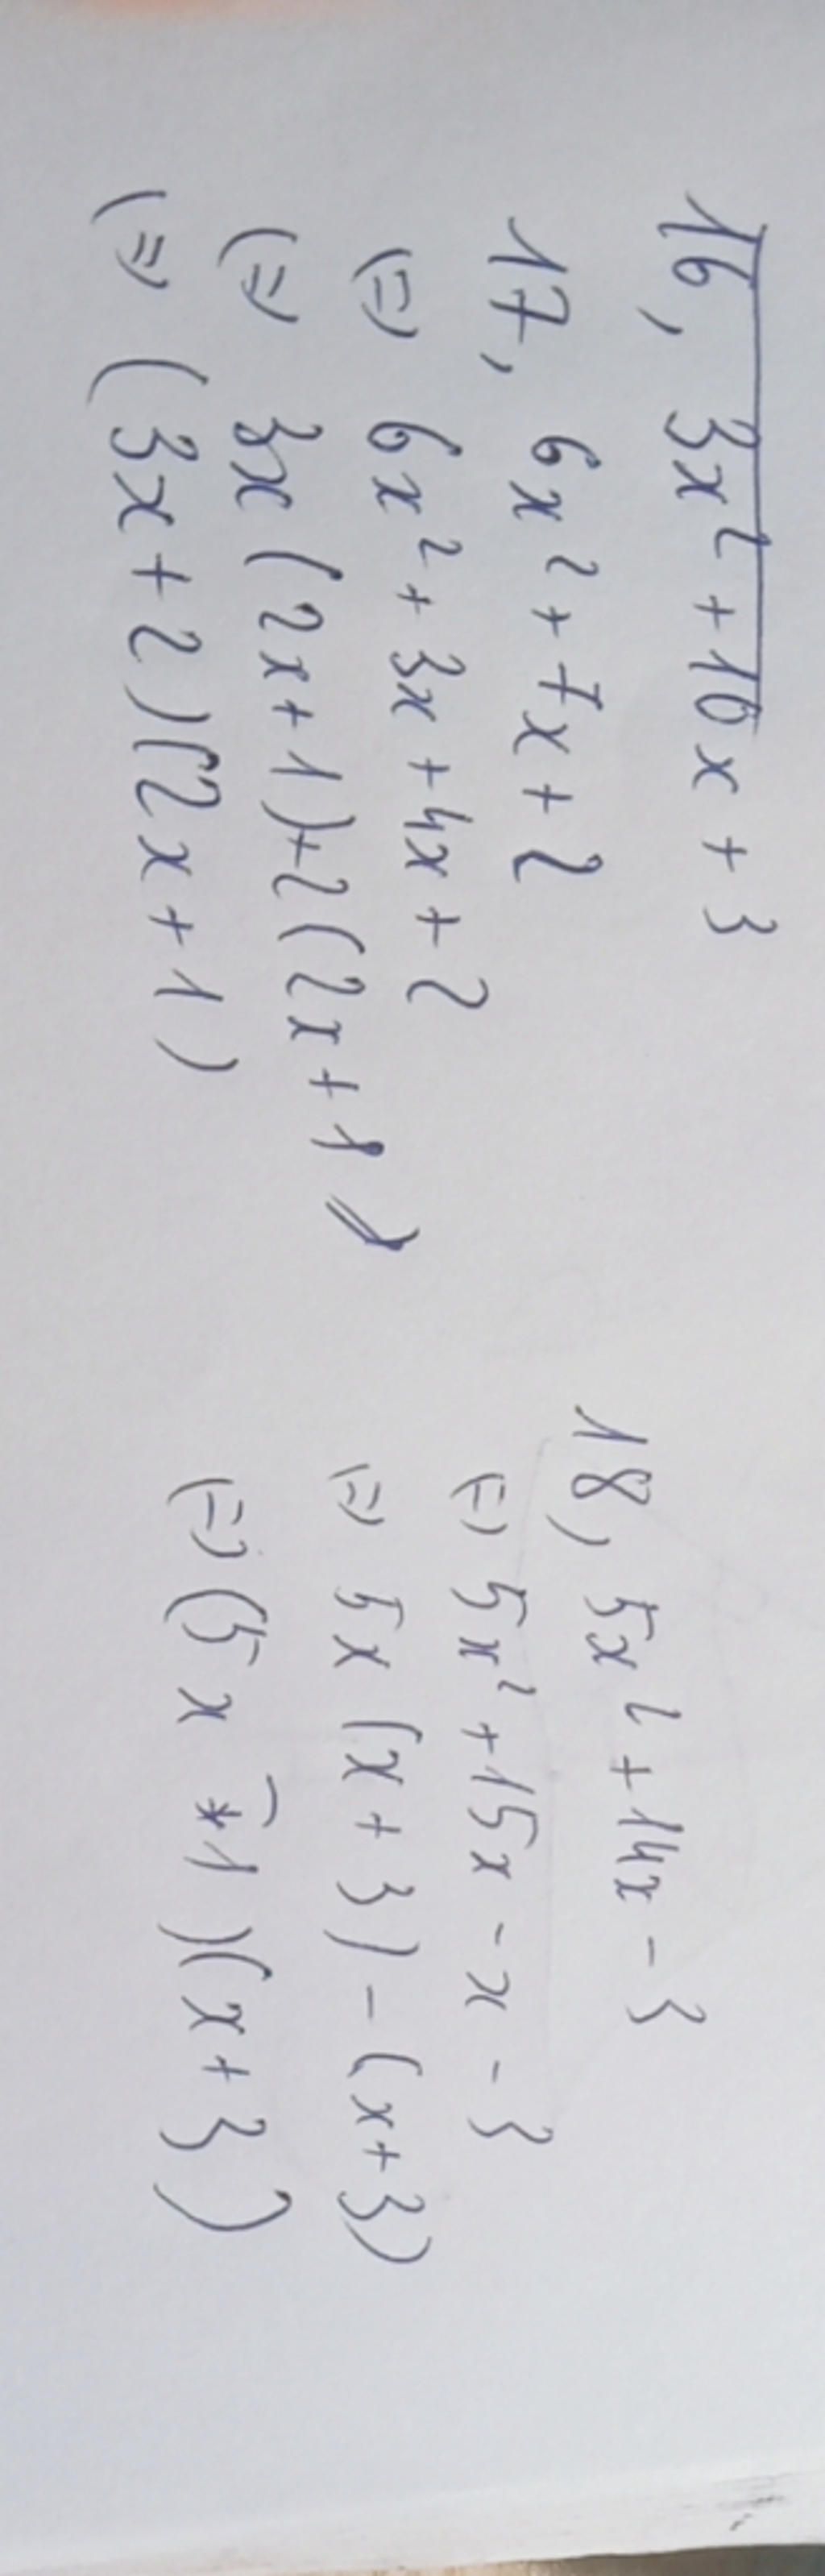 16, 3x² + 10x + 3
17, 6x² + 7x + 2
(=) 6x² + 3x + 4x + 2
(=) 3x (2x + 1) + 2 (2x + 1)
(=) (3x + 2) (2x + 1)
18, 5x² + 14x - 3
(=) 5x² + 15x - x - 3
(=) 5x (x + 3) - (x + 3)
(=) (5x - 1) (x + 3)